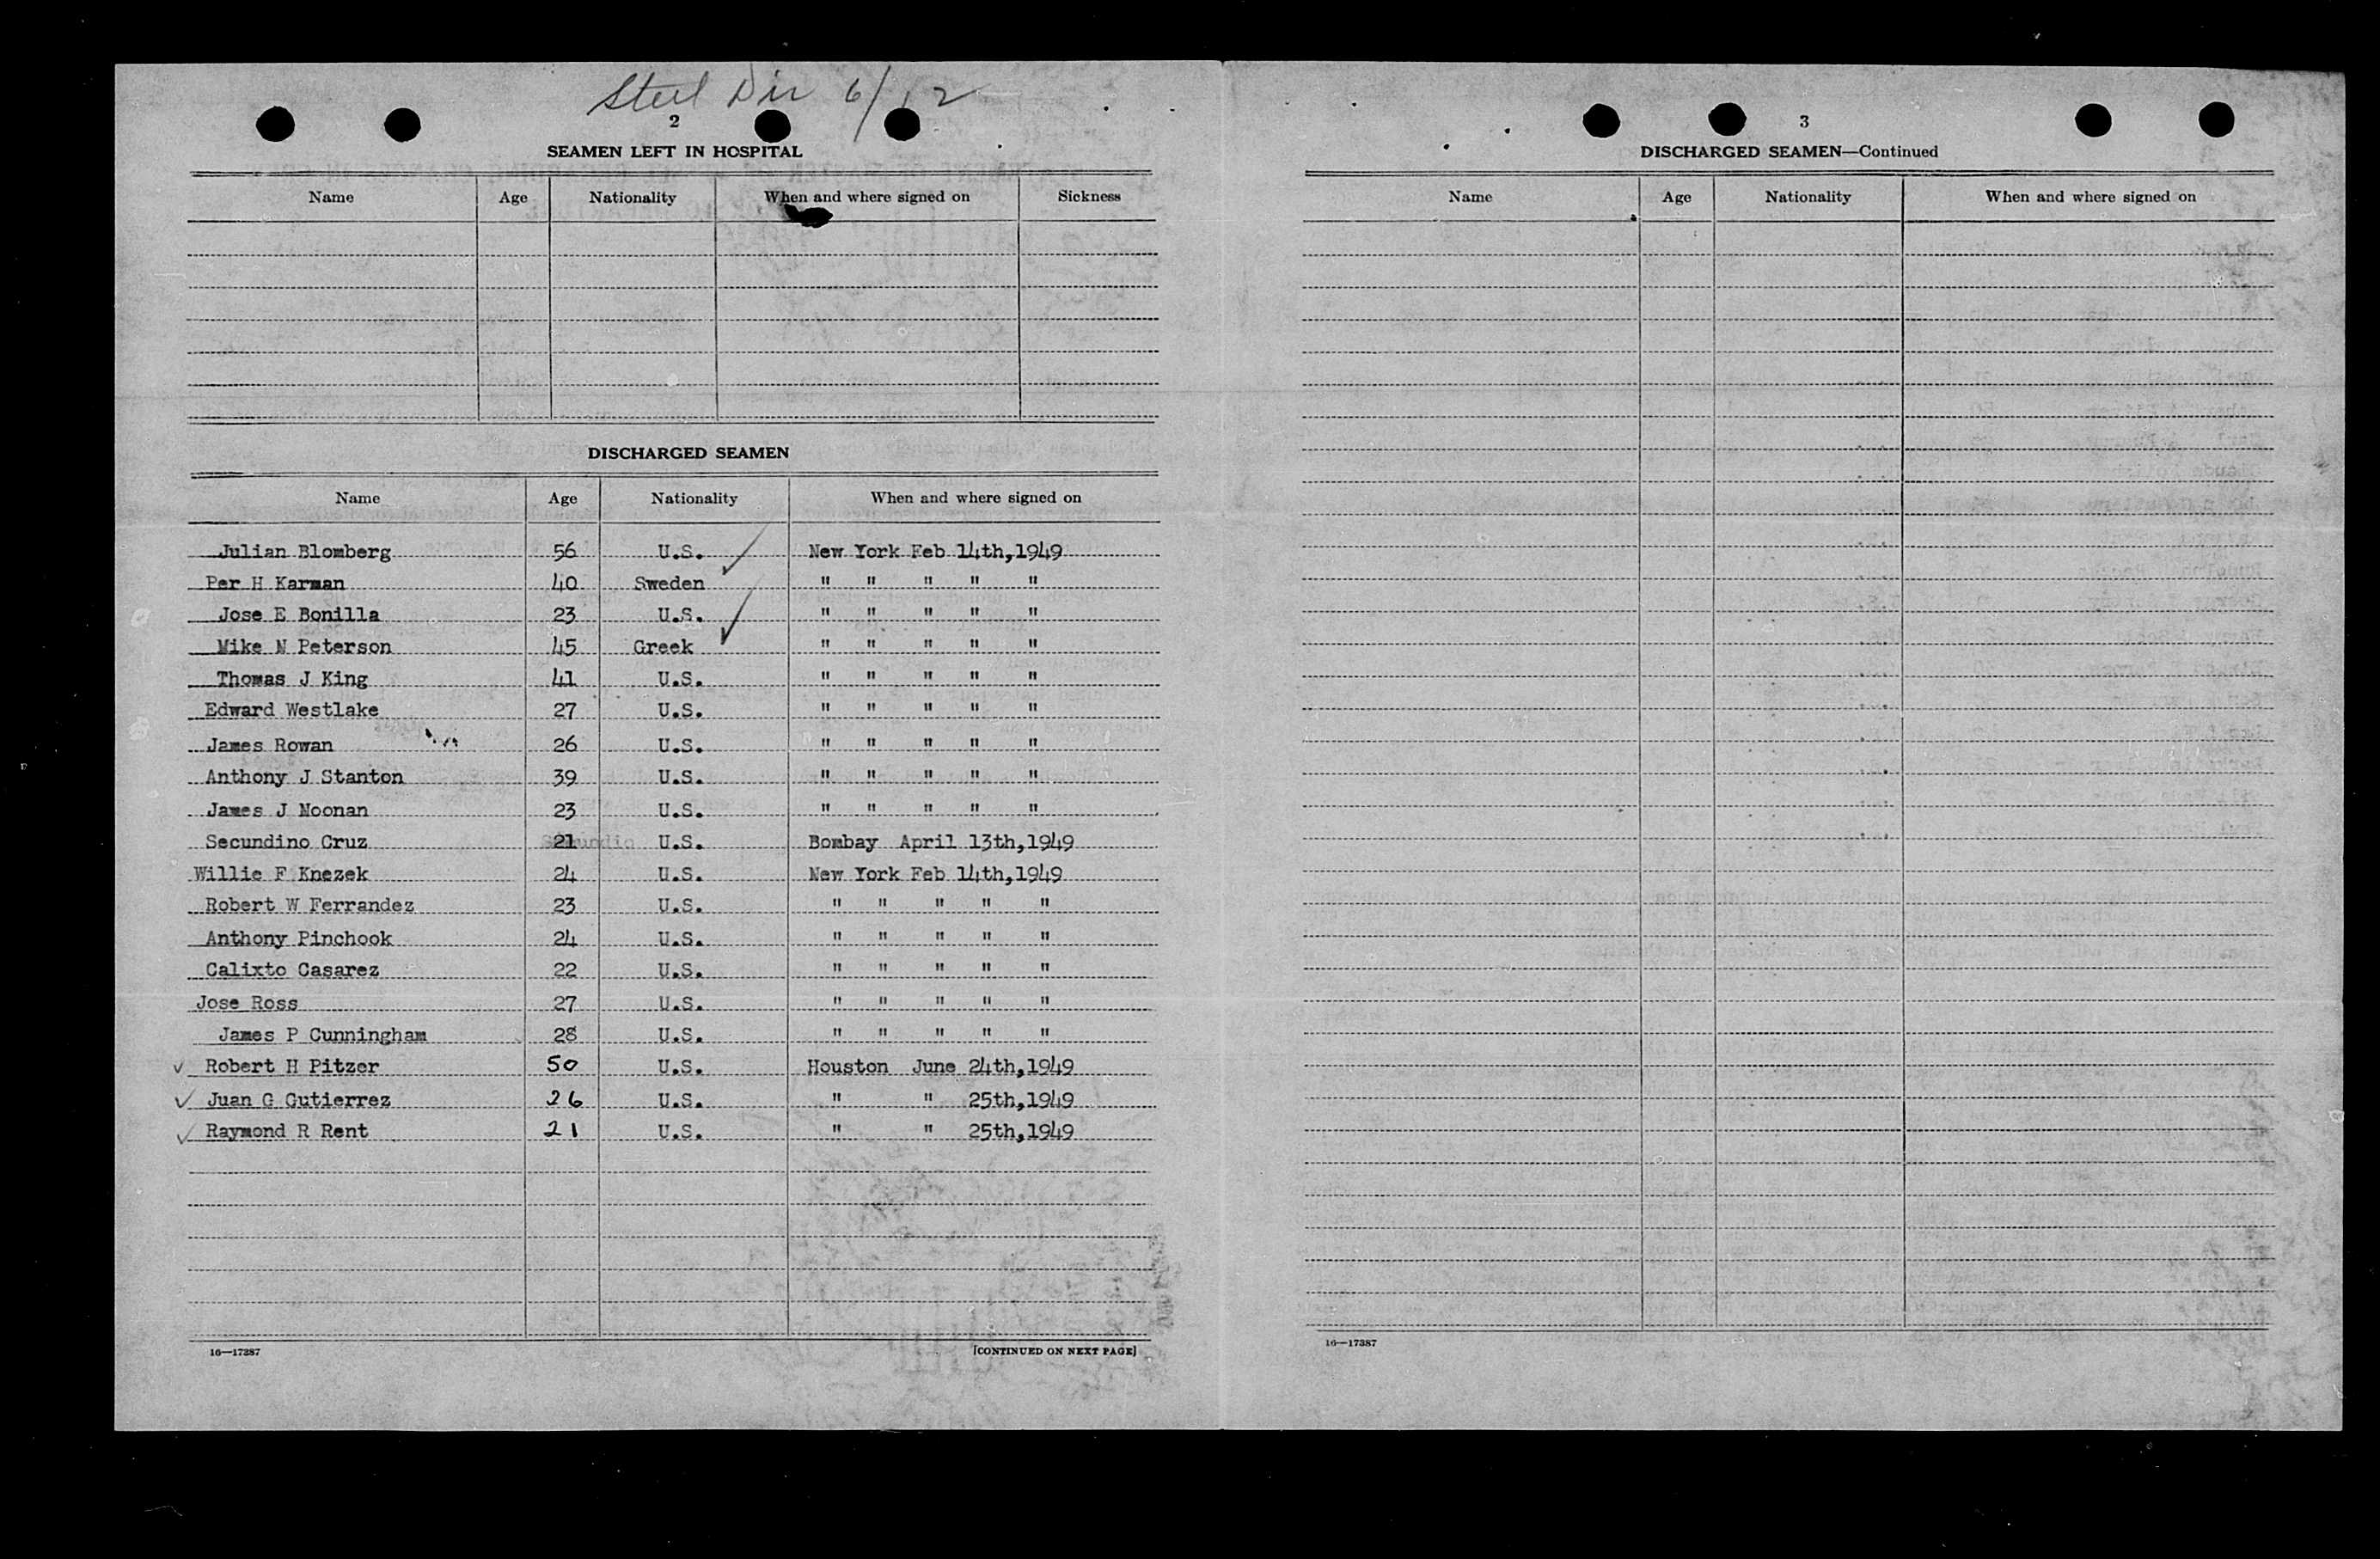 Steel Dir 6/12
2
SEAMEN LEFT IN HOSPITAL
Name Age Nationality When and where signed on Sickness
DISCHARGED SEAMEN
Name Age Nationality When and where signed on
Julian Blomberg 56 U.S. New York Feb 14th,1949
Per H Karman 40 Sweden " " " " "
Jose E Bonilla 23 U.S. " " " " "
Mike N Peterson 45 Greek " " " " "
Thomas J King 41 U.S. " " " " "
Edward Westlake 27 U.S. " " " " "
James Rowan 26 U.S. " " " " "
Anthony J Stanton 39 U.S. " " " " "
James J Noonan 23 U.S. " " " " "
Secundino Cruz 21 U.S. Bombay April 13th,1949
Willie F Knezek 24 U.S. New York Feb 14th,1949
Robert W Ferrandez 23 U.S. " " " " "
Anthony Pinchook 24 U.S. " " " " "
Calixto Casarez 22 U.S. " " " " "
Jose Ross 27 U.S. " " " " "
James P Cunningham 28 U.S. " " " " "
✓ Robert H Pitzer 50 U.S. Houston June 24th,1949
✓ Juan G Gutierrez 26 U.S. " " 25th,1949
✓ Raymond R Rent 21 U.S. " " 25th,1949
16—17387 [CONTINUED ON NEXT PAGE]
3
DISCHARGED SEAMEN—Continued
Name Age Nationality When and where signed on
16—17387